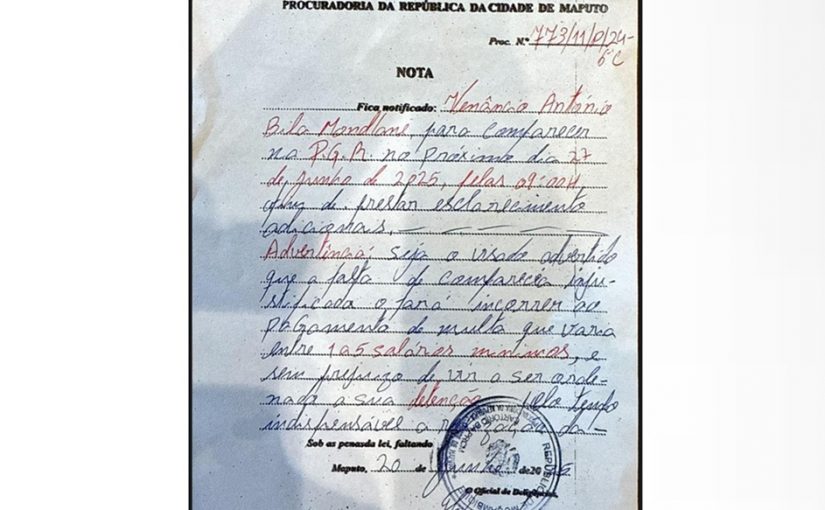 PROCURADORIA DA REPÚBLICA DA CIDADE DE MAPUTO
Proc. N.º 773/11/P/24-
6ªC
NOTA
Fica notificado: Venâncio António
Bila Mondlane, para comparecer
na P.G.R. no próximo dia 27
de Junho de 2025, pelas 09:00H,
de prestar esclarecimento
adicionais.
Advertência: seja o visado advertido
que a falta de comparecia inju-
stificada o fará incorrer ao
pagamento de multa que varia
entre 1 a 5 salários minimos, e
sem prejuizo de vir a ser orde-
nada a sua detenção pelo tempo
indispensável a
Sob as penas da lei, faltando
Maputo, 20 de Junho de 20
O Oficial de Deligências,